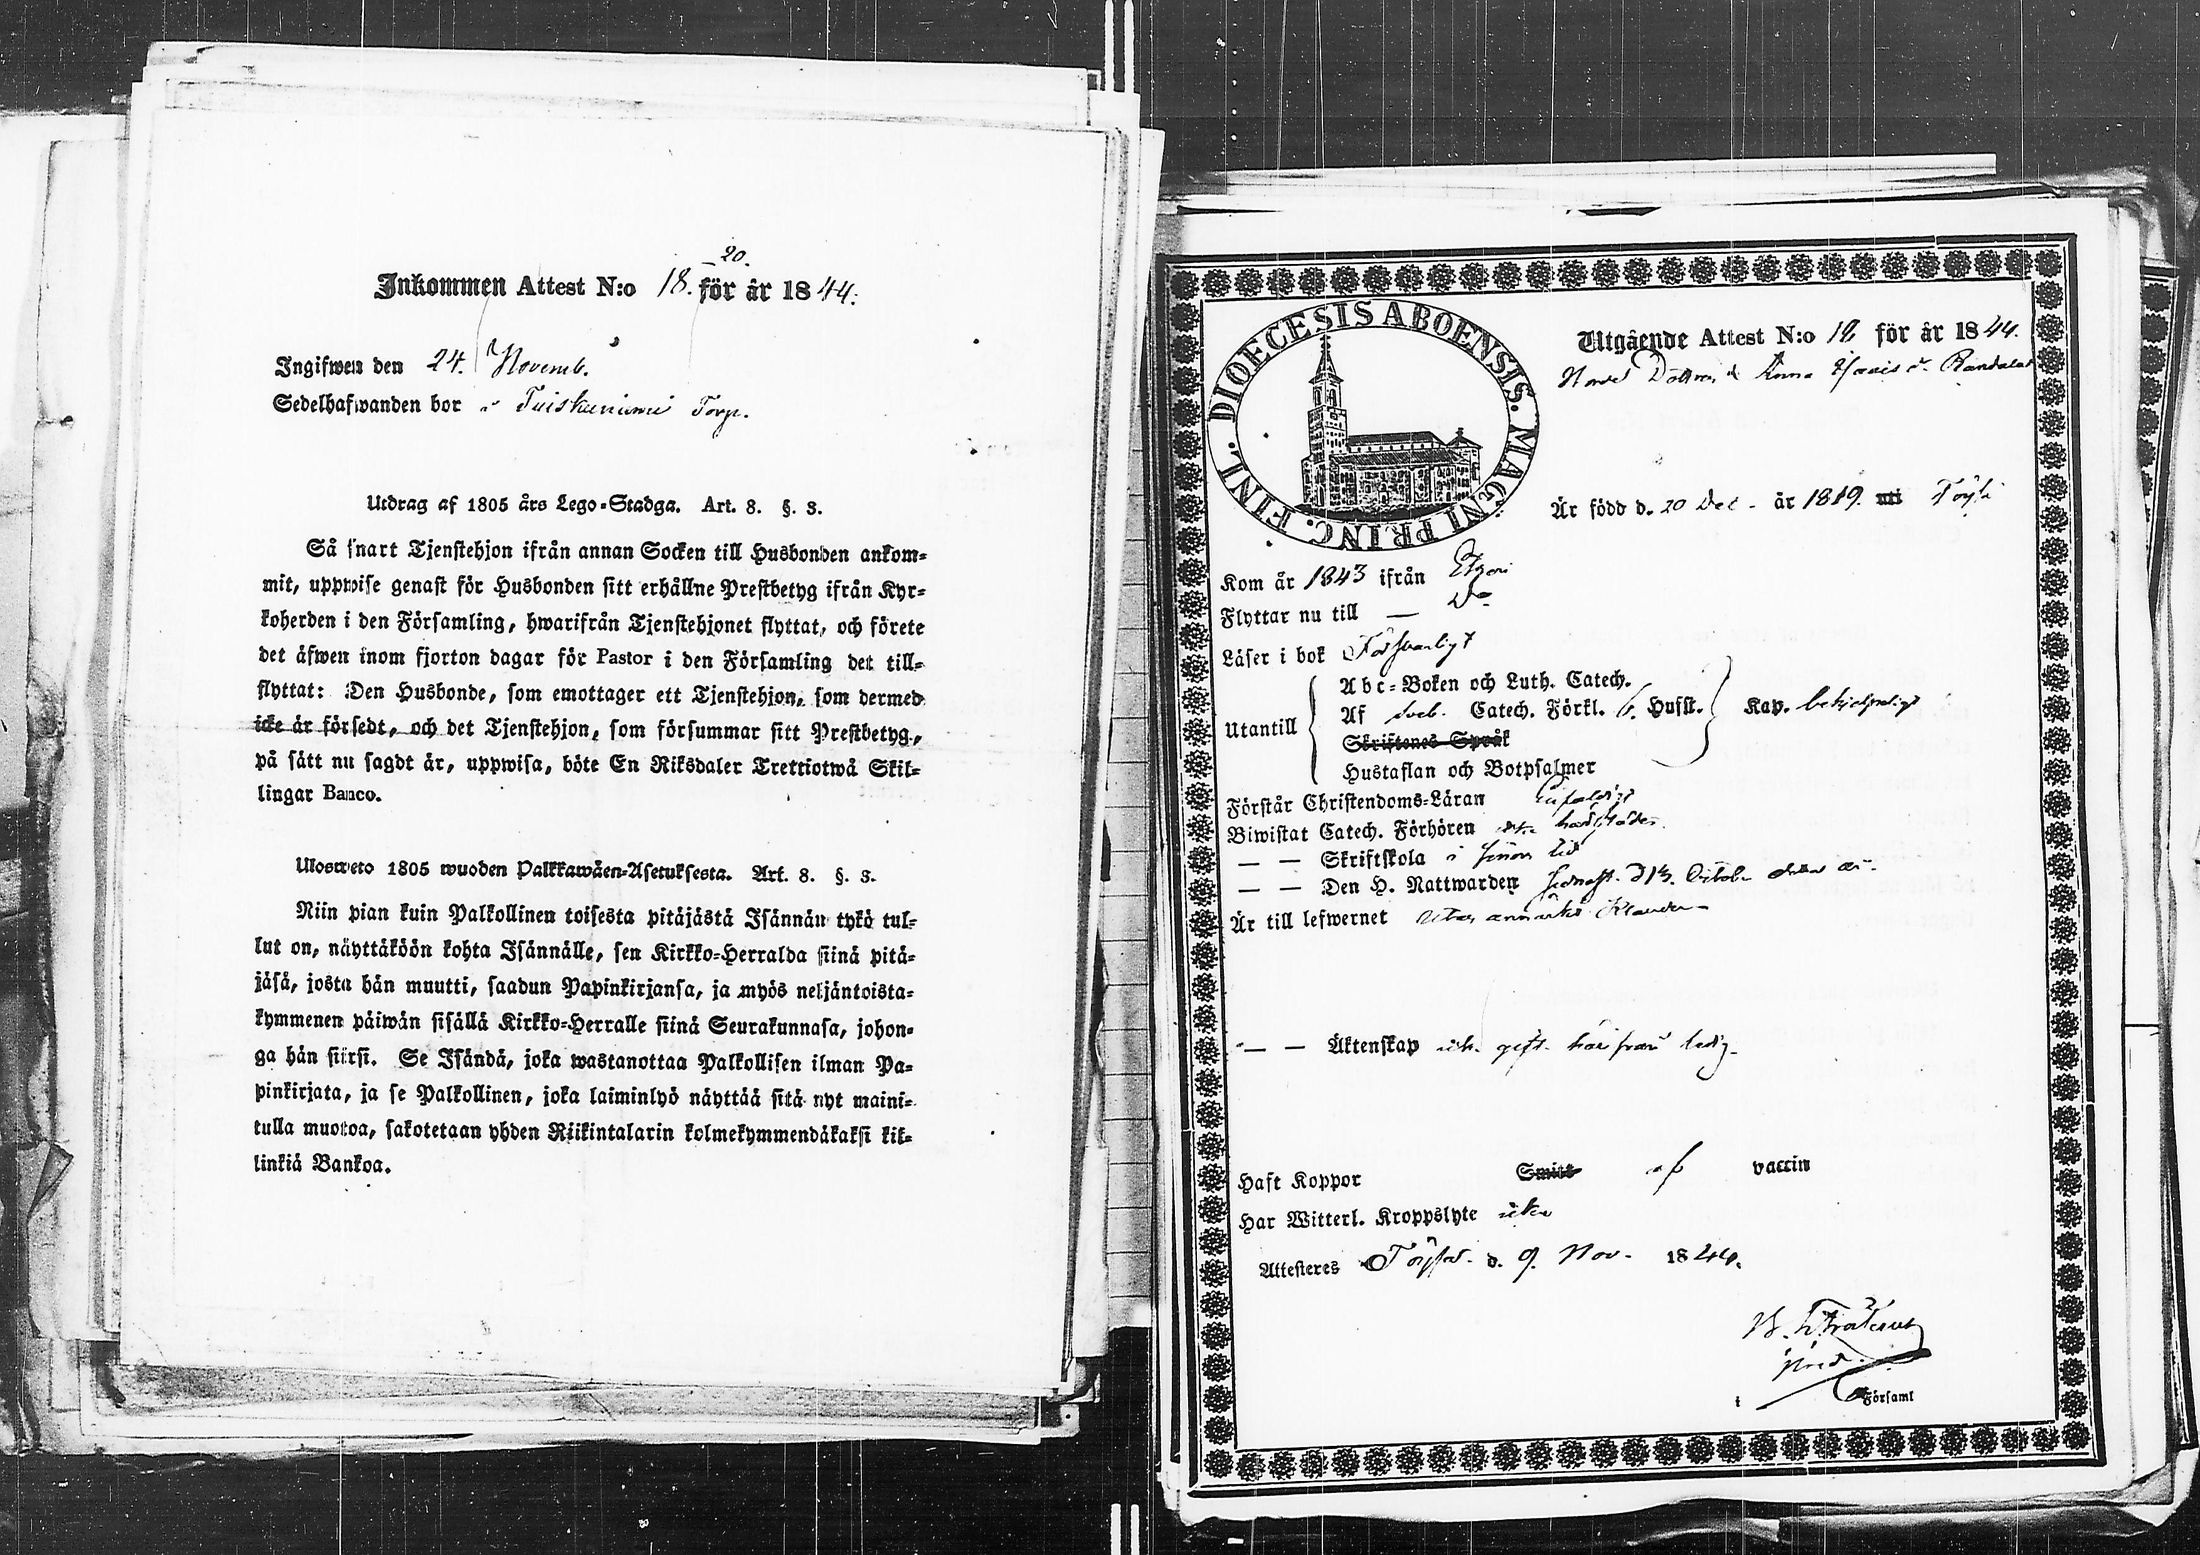 20.
Inkommen Attest N:o 18. för år 1844.
Ingifwen den 24. Novemb.
Sedelhafwanden bor Torp.
Utdrag af 1805 års Lego-Stadga. Art. 8. §. 3.
Så snart Tjenstehjon ifrån annan Socken till Husbonden ankom-
mit, uppwise genast för Husbonden sitt erhållne Prestbetyg ifrån Kyr-
koherden i den Församling, hwarifrån Tjenstehjonet flyttat, och förete
det äfwen inom fjorton dagar för Pastor i den Församling det till-
flyttat: Den Husbonde, som emottager ett Tjenstehjon, som dermed
icke är försedt, och det Tjenstehjon, som försummar sitt Prestbetyg,
på sätt nu sagdt är, uppwisa, böte En Riksdaler Trettiotwå Skil-
lingar Banco.
Ulosweto 1805 wuoden Palkkawäen-Asetuksesta. Art. 8. §. 3.
Niin pian kuin Palkollinen toisesta pitäjästä Isännän tykö tul-
lut on, näyttäköön kohta Isännälle, sen Kirkko-Herralda siinä pitä-
jäsä, josta hän muutti, saadun Papinkirjansa, ja myös neljäntoista-
kymmenen päiwän sisällä Kirkko-Herralle siinä Seurakunnasa, johon-
ga hän siirsi. Se Isändä, joka wastanottaa Palkollisen ilman Pa-
pinkirjata, ja se Palkollinen, joka laiminlyö näyttää sitä nyt maini-
tulla muotoa, sakotetaan yhden Riikintalarin kolmekymmendäkaksi kil-
linkiä Bankoa.
DIOECESIS ABOENSIS. MAGNI PRINC. FINL.
Utgående Attest N:o 12 för år 1844.
Anna
Är född d. 20 Dec. år 1819. uti Töysä
Kom år 1843 ifrån Etzeri
Flyttar nu till — Do
Läser i bok Försvarligt
Abc-Boken och Luth. Catech.
Utantill Af Sveb. Catech. Förkl. Husst. Kap. behjelpeligt
Skriftenes Språk
Hustaflan och Botpsalmer
Förstår Christendoms-Läran Enfaldigt
Biwistat Catech. Förhören
— — Skriftskola i sinom tid
— — Den H. Nattwarden sednast d 13 October detta år.
Är till lefwernet utan anmärkt klander
— — Äktenskap icke gift. härifrån ledig.
Haft Koppor Smitt af vaccin
Har Witterl. Kroppslyte icke
Attesteres Töysä d. 9. Nov. 1844.
i Församl